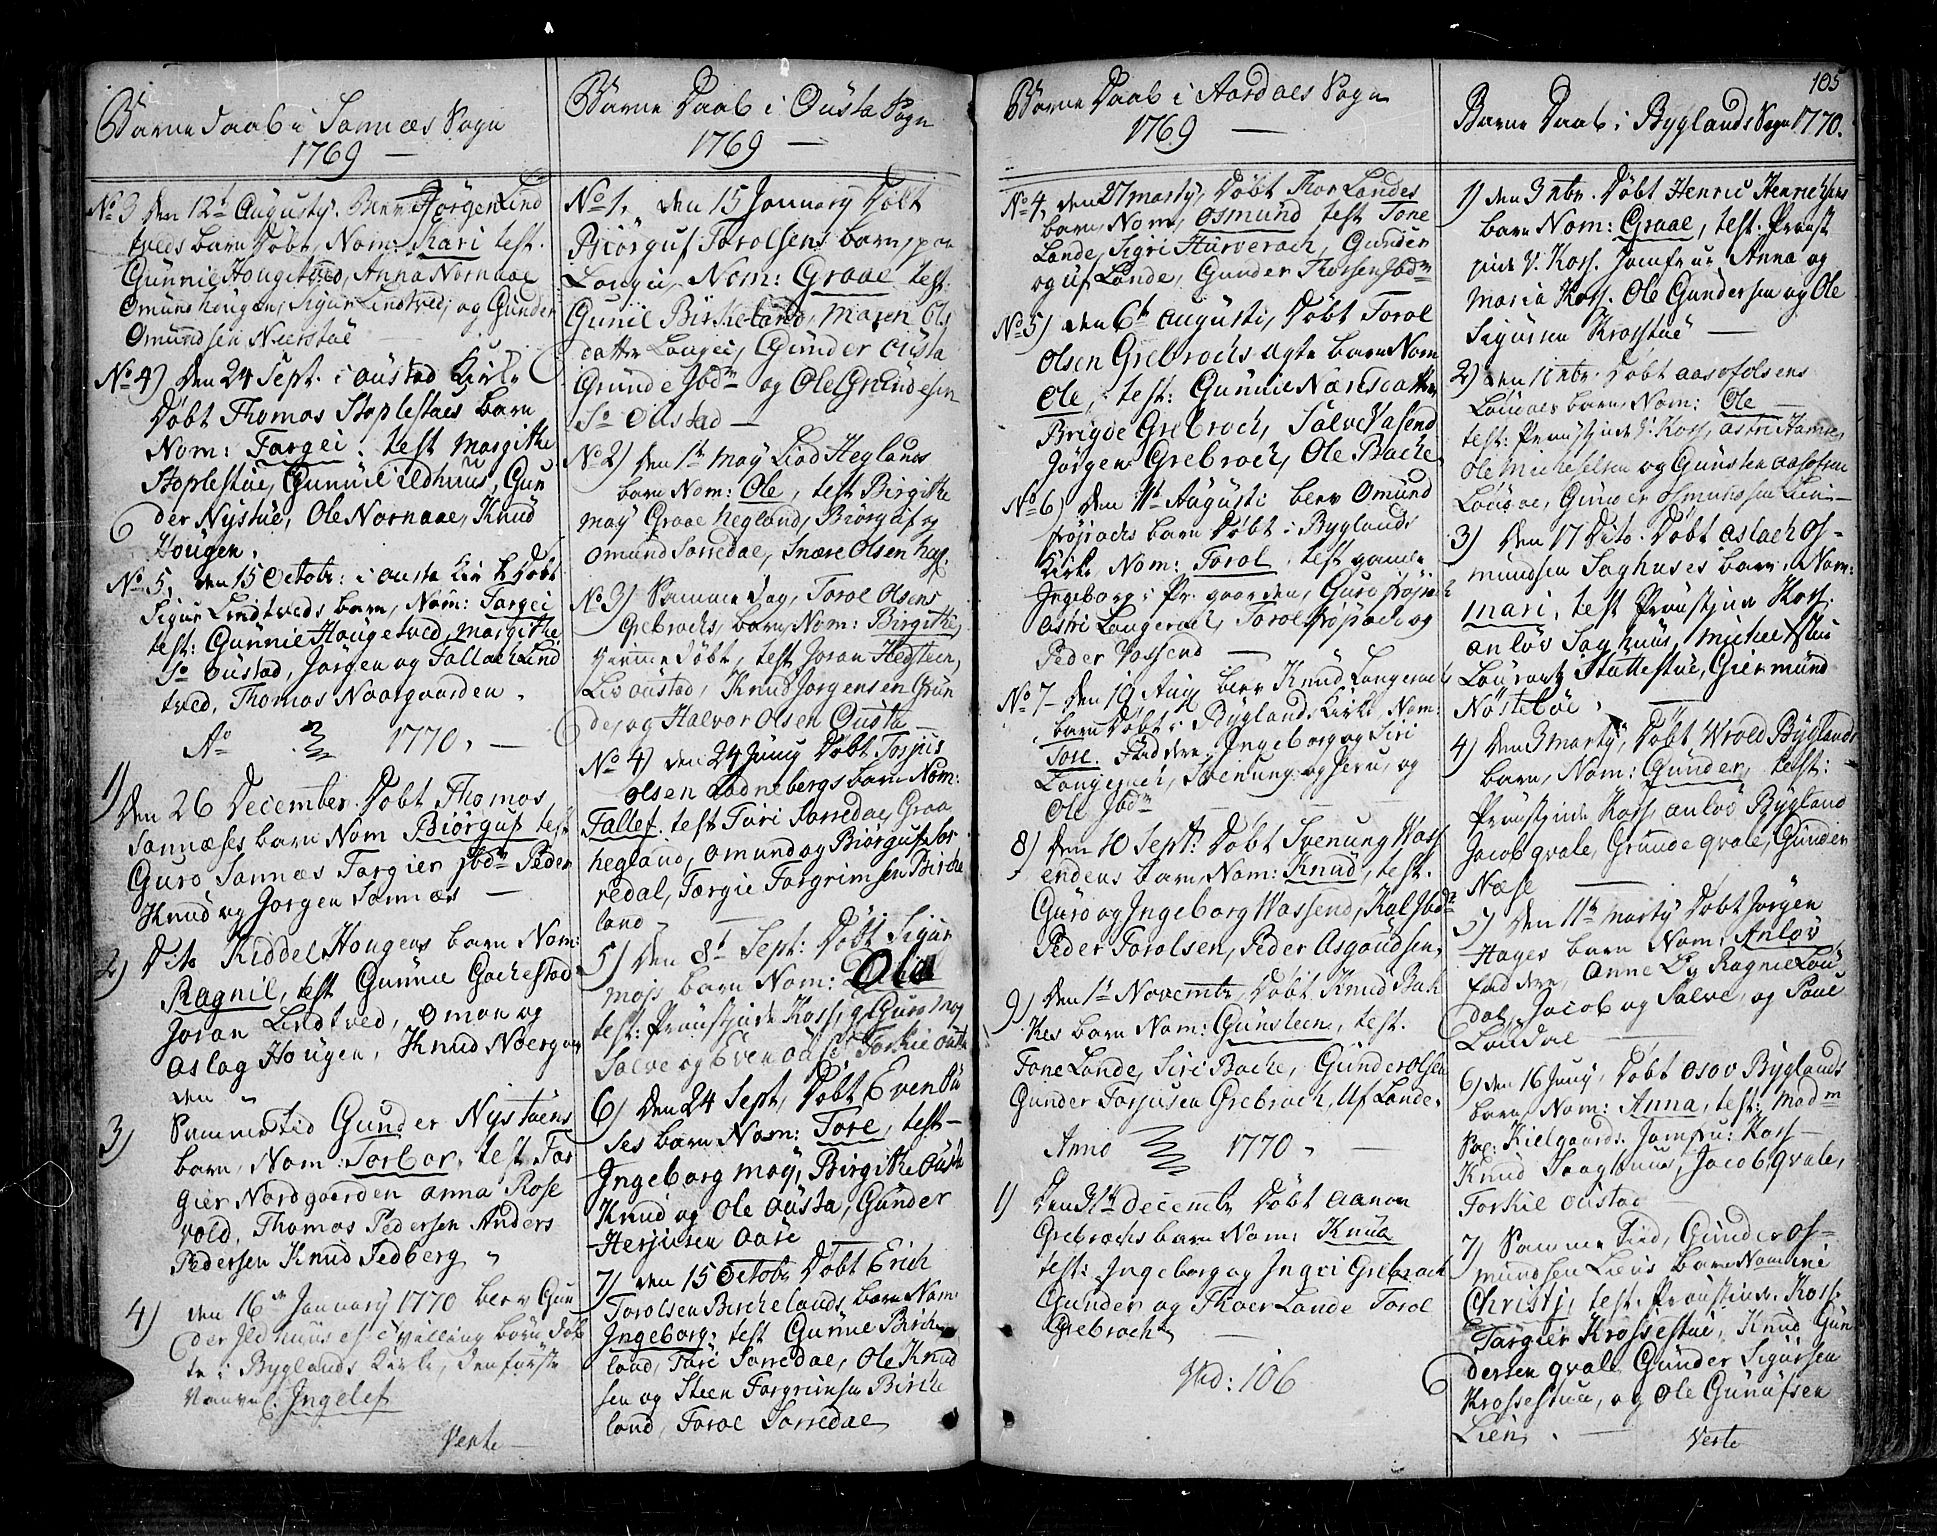 Børne Daab i Sannæs Sogn
1769 —
No 3 Den 12t Augusty. Blev Jørgen Lind
tveds barn Døbt, Nom: Kari test.
Gunnil Hougetved, Anna Nornaae
Omund Hougen, Sigur Lindtved, og Gunder
Omundsen Neerstøe
No 4) Den 24 Sept. i Oustad Kirke
Døbt Thomas Stoplestøes barn
Nom: Targei: test Margithe
Stoplestøe, Gunnil Ildhuus, Gun
der Nystøe, Ole Nornaae, Knud
Hougen.
No 5, den 15 Octobr: i Ousta Kirke Døbt
Sigur Lindtveds barn, Nom: Targei
test: Gunnil Hougetved, Margithe
So Oustad, Jørgen og Tallach Lind
tved, Thomas Noorgaarden.
Ao 1770. —
1) Den 26 December. Døbt Thomas
Sannæses barn Nom Biørguf test
Guro Sannæs Targier Jbdm Peder
Knud og Jørgen Sannæs —
2) Dito Kiddel Hougens barn Nom:
Ragnil, test Gunnil Gakestad
Joran Lindtved, Omon og
Aslag Hougen, Knud Noergaar
den "
3) Samme tid Gunder Nystøens
barn, Nom: Torbor, test Tar
gier Nordgaarden Anna Rose
vold, Thomas Pedersen Anders
Pedersen Knud Tedberg "
4) den 16de January 1770 blev Gun
der Ildhuus et tvilling børn døb
te i Byglands Kirke, den første
Nauvn. Ingelef
Verte —
Børne Daab i Ousta Sogn
1769 —
No 1, den 15 January Døbt
Biørguf Torolsens barn, paa
Longei, Nom: Graae test:
Gunil Birkeland, Maren Ols
datter Longei, Gunder Ousta
Grunde Jbdm og Ole Grundesen
So Oustad —
No 2) Den 1te May Liod Heglands
barn Nom: Ole, test Birgithe
may Graae Hegland, Biørguf og
Omund Sorredal, Snære Olsen Heg.
No 3) Samme Dag, Torol Olsens
Grebrochs, barn Nom: Birgithe,
hiemmedøbt, test Joran Hedsteen,
Liv Oustad, Knud Jorgensen Grun
de, og Halvor Olsen Ousta —
No 4) den 24 Juny Døbt Torjus
Olsen Ladnebergs barn Nom:
Tallef. test Turi Sorredal, Graa
hegland, Omund og Biørguf Sor
redal, Targie Torgrimsen Birke
land —
5) Den 8t Sept: Døbt Sigur
mojs barn Nom: Ola
test: Proustinde Koss, Guro moy
Salve og Even Ouse, Torkil Ousta
6) Den 24 Sept, Døbt Even Ou
ses barn Nom: Tore, test—
Ingeborg moy, Birgithe Ousta
Knud og Ole Ousta, Gunder
Herjusen Aase
7) den 15 Octobr Døbt Erich
Torolsen Birchelands barn Nom:
Ingeborg: test Gunne Birche
land, Turi Sorredal, Ole Knud
sen og Steen Torgrimsen Birche
land, Torol Sorredal
Børne Daab i Aardals Sogn
1769 —
No 4, den 27 marty, Døbt Thor Landes
barn, Nom, Osmund test Tone
Lande, Sigri Hurverach, Gunder
og uf Lande, Gunder Thorsen Jbdm
No 5) den 6te Augusti, Døbt Torol
Olsen Grebrochs ægte barn Nom
Ole, test: Gunnil Narisdatter
Brigde Grebroch, Salve Vasend
Jørgen Grebroch, Ole Backe
No 6) Den 11t Augusti blev Omund
Frøsaachs barn Døbt i Byglands
Kirke Nom: Torol, test gamle
Ingeborg i Pr. gaarden, Guro Frøsaach
Astri Langerach, Torol Frøsaach og
Peder Vassend —
No 7 — Den 19 Aug blev Knud Langerachs
barn Døbt i Byglands Kirke, Nom:
Tore. Faddere, Ingeborg og Siri
Langerach, Svenung og Jeru, og
Ole Jbdm
8) Den 10 Sept: Døbt Svenung Vass
endens barn, Nom: Knud, test.
Guro og Ingeborg Vassend, Kal Jbdm
Peder Torolsen, Peder Asgoudsen.
9) Den 1t Novembr, Døbt Knud Bak
kes barn Nom: Gunsteen, test.
Tone Lande, Siri Backe, Gunder Olsen
Gunder Torjusen Grebroch, Uf Lande.
Anno 1770 " —
1) Den 31te Decembr Døbt Aanon
Grebrochs barn Nom: Knud
test: Ingeborg og Ingri Grebroch
Gunder og Thoer Lande Torol
Grebroch —
Vid: 106
105
Børne Daab i Byglands Sogn 1770.
1) den 3 nbr. Døbt Henric Henrichsens
barn Nom: Graae, test. Proust
inde V. Koss. Jomfrue Anna og
Maria Koss. Ole Gundersen og Ole
Sigursen Krosstøe —
2) den 11 nbr. Døbt Aasof Olsens
Løudals barn, Nom: Ole —
test: Proustinde V: Koss, Astri
Ole Michelsen og Gunsten Aasofsen
Løudal, Gunder Osmundsen Lien —
3) Den 17 Dito. Døbt Aslach Os-
mundsen Saghuses barn. Nom:
Mari, test Proustinde Koss.
Anlov Saghuus, Michel
Stattestøe, Giermund
Nøstebøe. —
4) Den 3 marty, Døbt Wrold Byglands
barn, Nom: Gunder, test:
Proustinde Koss, Anlov Bygland
Jacob Qvale, Grunde Qvale, Gunder
Næse —
5) Den 11te marty Døbt Jørgen
Hages barn Nom: Anlov
faddere, Anne Ly Ragnil Løu
dal, Jacob og Salve, og Poul
Løudal —
6) den 16 Juny, Døbt Osov Byglands
barn, Nom: Anna, test: Madm
Sal: Kielgaards. Jomfru: Koss —
Knud Saaghuus, Jacob Qvale,
Torkil Oustad —
7) Samme Tid, Gunder Os-
mundsen Liens barn Nomine
Christi, test. Proustinde Koss.
Targier Krossestøe, Knud Gun
dersen Qvale Gunder Sigursen
Krossestøe, og Ole Gunufsen
Lien. —
Verte